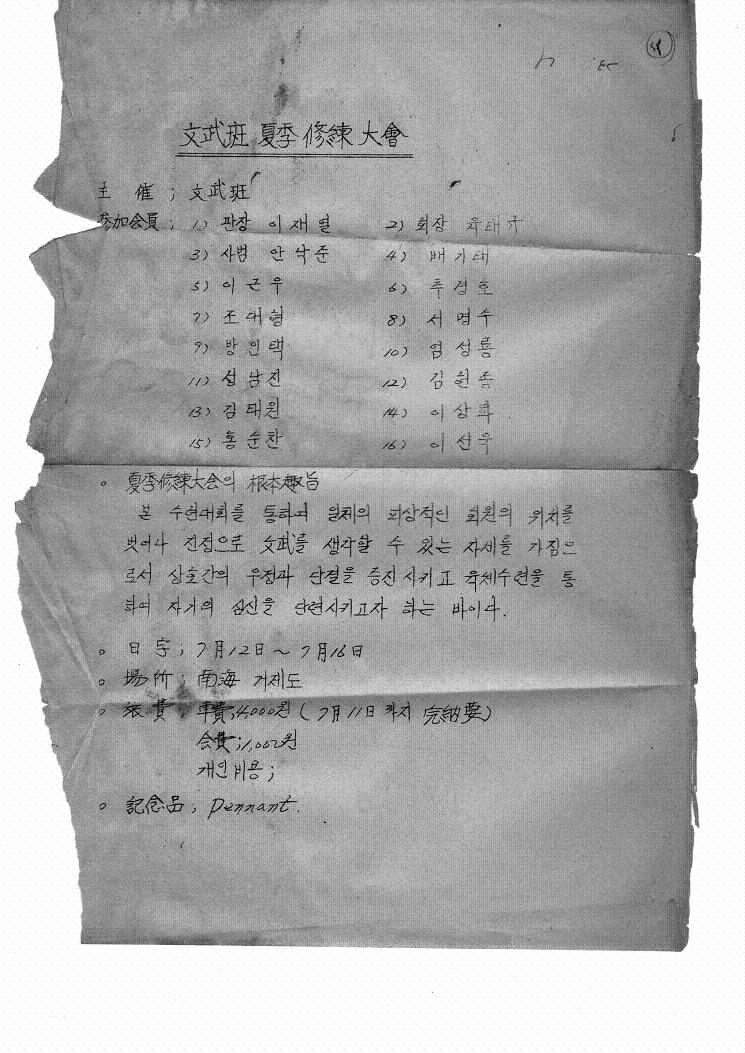 文武班 夏季 修練 大會
主 催 ; 文武班
参加会員 ; 1) 관장 이재열 2) 회장
3) 사범 안낙준 4) 배기태
5) 이근우 6) 추경호
7) 조대형 8) 서명수
9) 방인택 10) 엄성룡
11) 성남진 12) 김원종
13) 김태원 14) 이상화
15) 홍순찬 16) 이선우
。 夏季修練大会의 根本趣旨
본 수련대회를 통하여 일체의 피상적인 회원의 위치를
벗어나 진정으로 文武를 생각할 수 있는 자세를 가짐으
로서 상호간의 우정과 단결을 증진시키고 육체수련을 통
하여 자기의 심신을 단련시키고자 하는 바이다.
。 日字 ; 7月12日 ~ 7月16日
。 場所 ; 南海 거제도
。 旅費 ; 車費;4,000원 ( 7月11日까지 完納要)
会費;1,000원
개인비용;
。 記念品 ; Pennant.